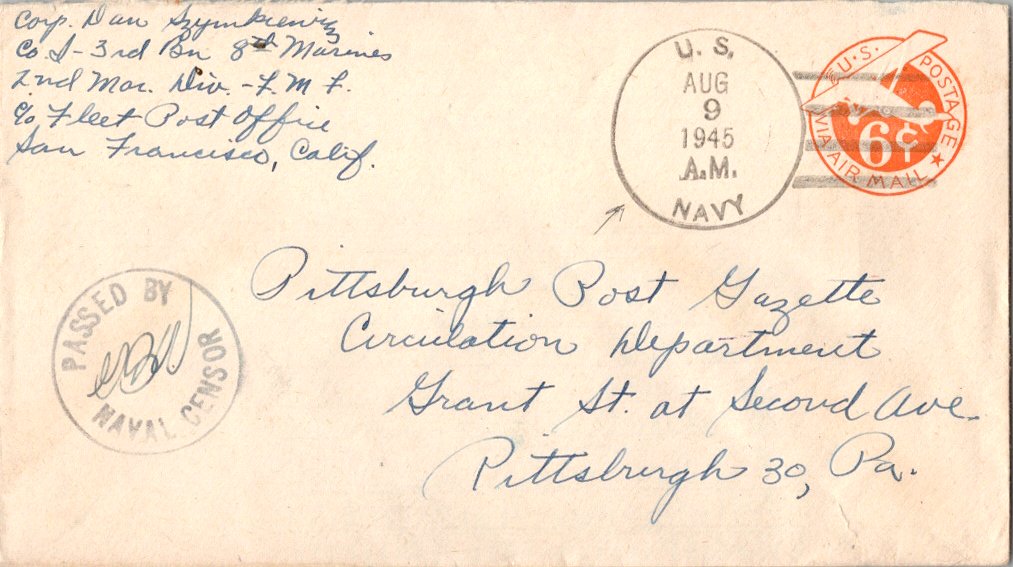 Corp. Dan Szymkiewicz
Co I - 3rd Bn 8th Marines
2nd Mar. Div. - F. M. F.
c/o Fleet Post Office
San Francisco, Calif.
U. S.
AUG
9
1945
A.M.
NAVY
U.S. POSTAGE
6¢
VIA AIR MAIL
PASSED BY
NAVAL CENSOR
Pittsburgh Post Gazette
Circulation Department
Grant St. at Second Ave.
Pittsburgh 30, Pa.